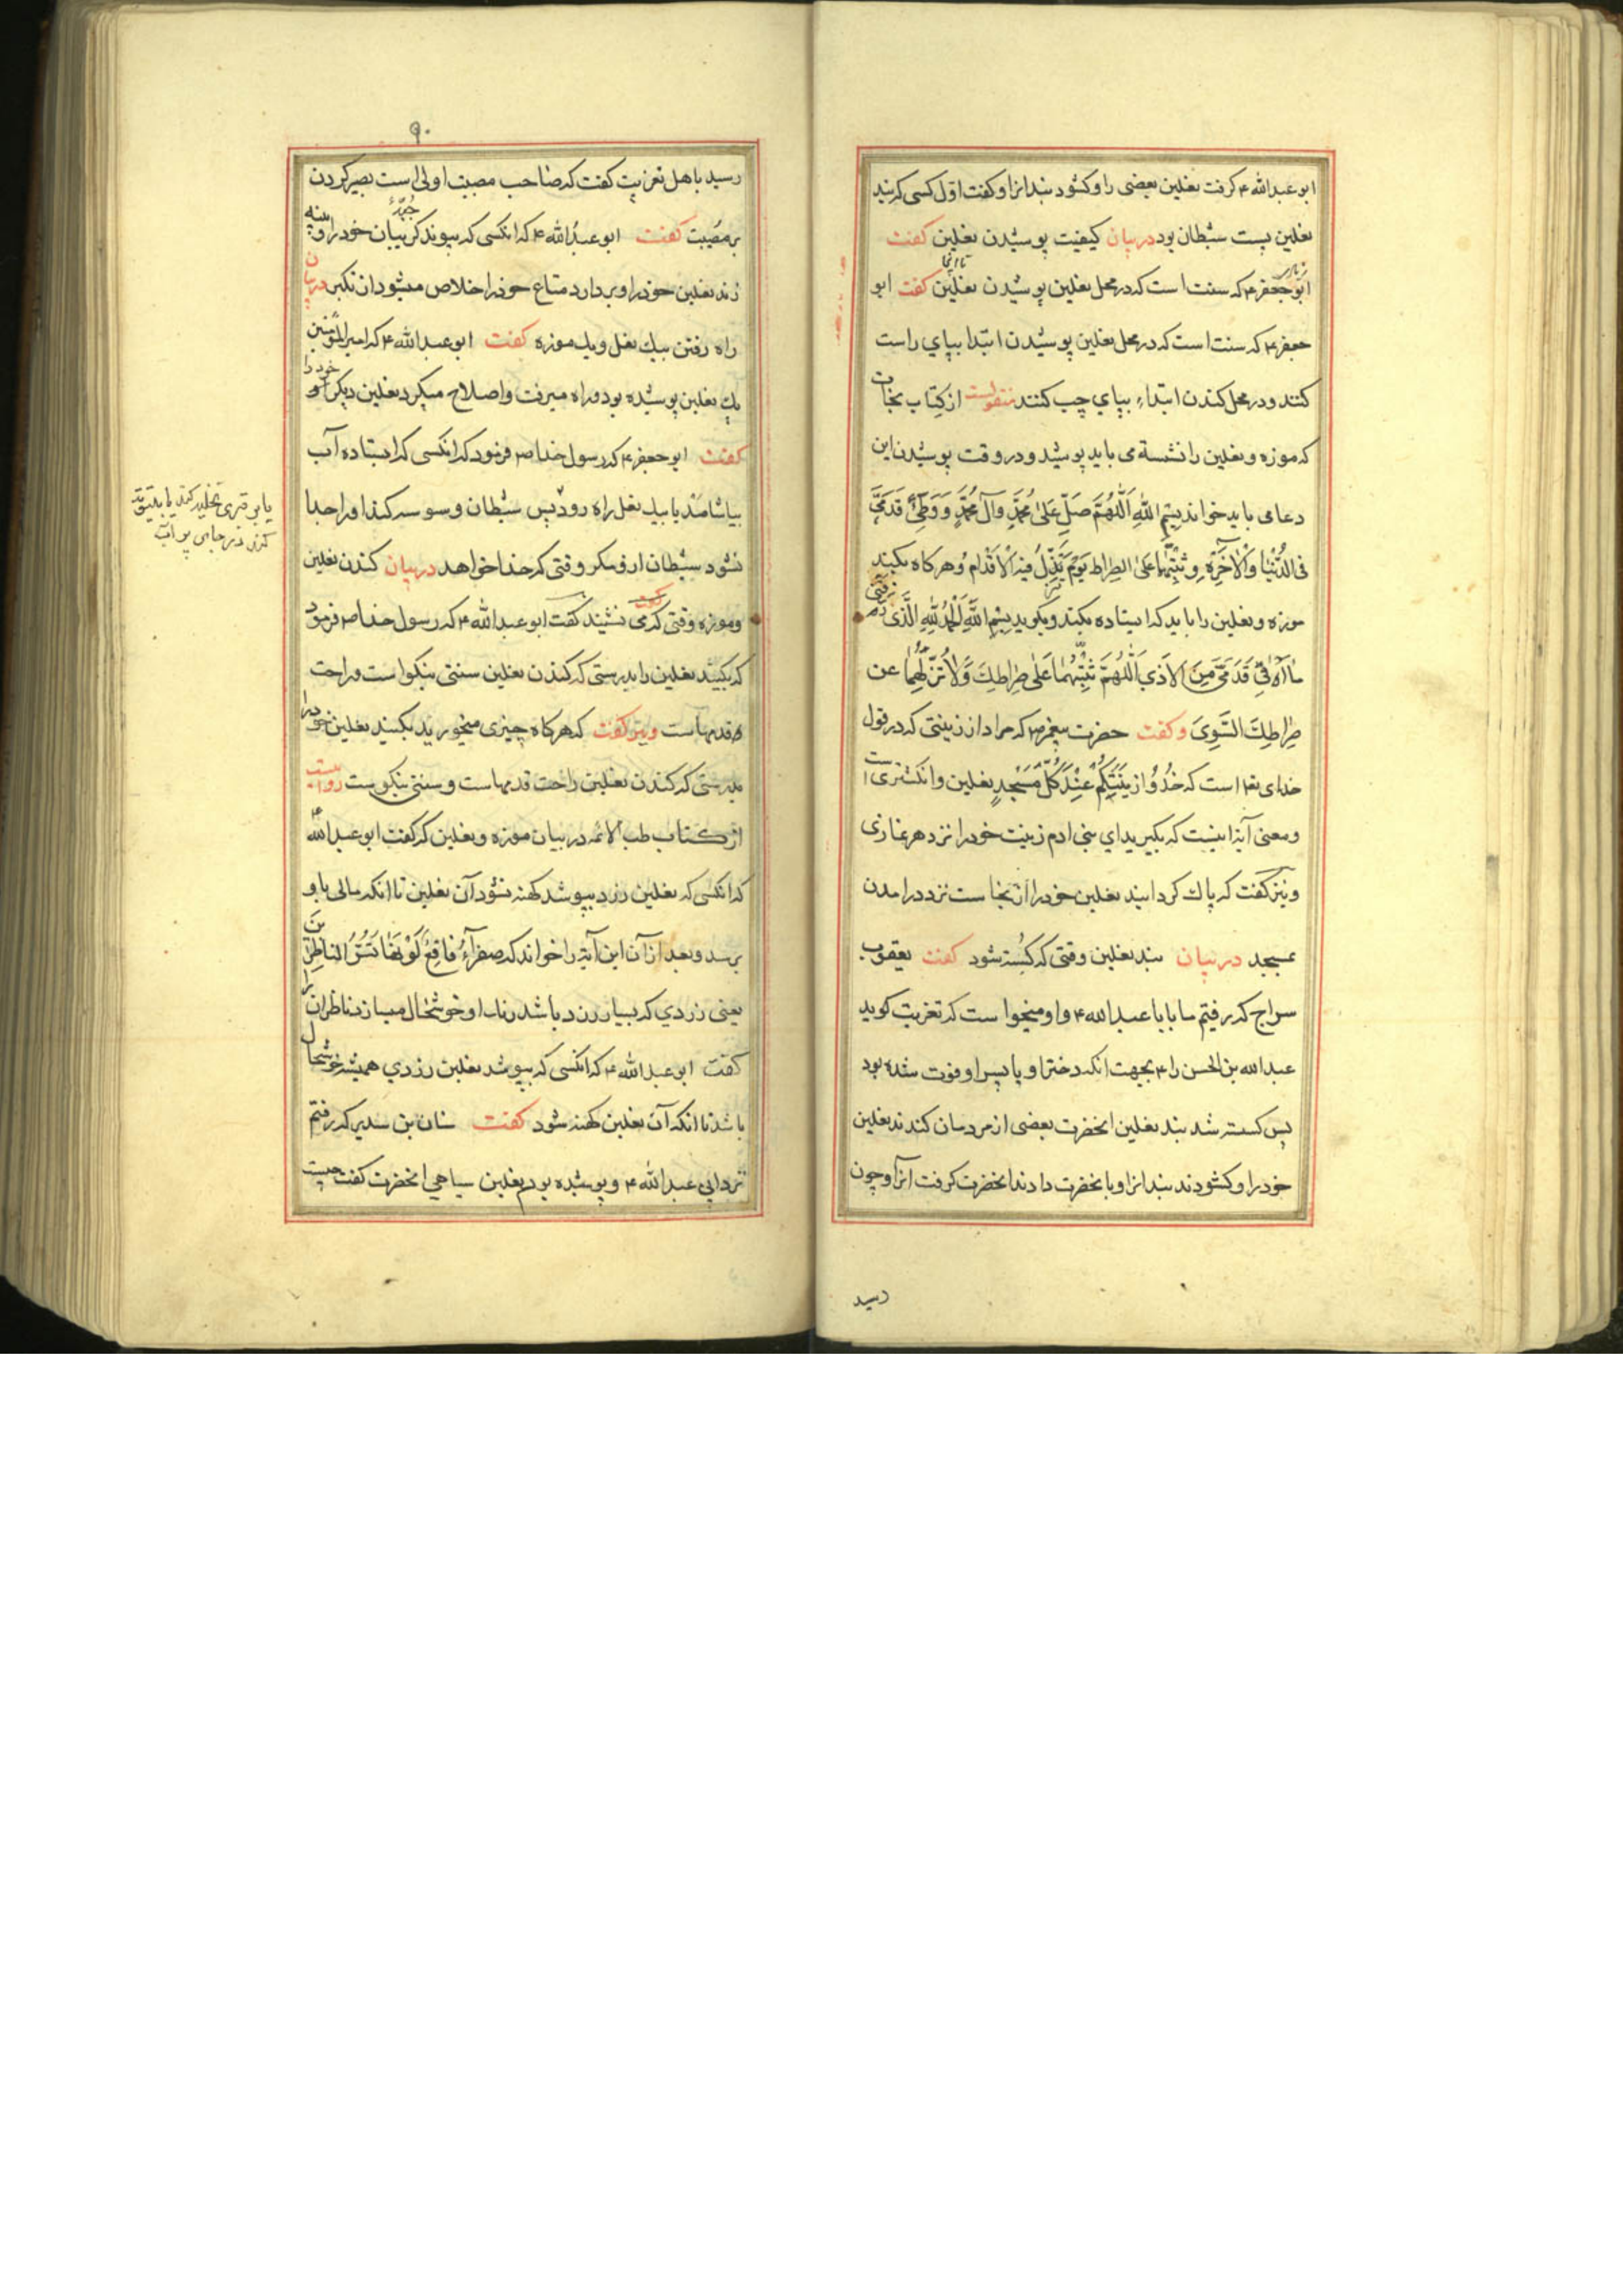 ابو عبدالله ع گرفت نعلین بعضی را و کشود بند انرا و کفت اول کسی که بند
نعلین بست شیطان بود در بیان کیفیت پوشیدن نعلین کفت
ابو جعفر ع که سنت است که در محل نعلین پوشیدن نعلین کفت ابو
جعفر ع که سنت است که در محل نعلین پوشیدن ابتدا بپای راست
کنند و در محل کندن ابتداء بپای چپ کنند منقولست از کتاب نجات
که موزه و نعلین را نشسته می باید پوشید و در وقت پوشیدن این
دعا می باید خواند بِسْمِ اللهِ اَللّٰهُمَّ صَلِّ عَلىٰ مُحَمَّدٍ وَآلِ مُحَمَّدٍ وَوَطِّئْ قَدَمَيَّ
فی الدُّنْيٰا وَالْاٰخِرَةِ وَثَبِّتْهُمٰا عَلىٰ الصِّرٰاطِ يَوْمَ تَزِلُّ فيهِ الْاَقْدٰامُ وهرکاه بکند
موزه و نعلین را باید که ایستاده بکند و بکوید بِسْمِ اللهِ اَلْحَمْدُ لِلّٰهِ الَّذی رزقنی
مٰا اَوْقی قَدَمَيَّ مِنَ الْاَذىٰ اَللّٰهُمَّ ثَبِّتْهُمٰا عَلىٰ صِرٰاطِكَ وَلٰا تُزِلَّهُمٰا عن
صِرٰاطِكَ السَّوِیّ وکفت حضرت پیغمبر ص که مراد از زینتی که در قول
خدای تعا است که خُذُوا زينَتَكُمْ عِنْدَ كُلِّ مَسْجِدٍ نعلین و انکشتری است
و معنی آیه اینست که بکیرید ای بنی ادم زینت خود را نزد هر نمازی
و نیز کفت که پاک کردانید نعلین خود را از نجاست نزد درامدن
بمسجد در بیان بند نعلین وقتی که کسسته شود کفت یعقوب
سراج که رفتیم ما با ابا عبدالله ع و او میخواست که تعزیت کوید
عبدالله بن الحسن را ع بجهت انکه دختر او یا پسر او فوت شده بود
پس کسسته شد بند نعلین انحضرت بعضی از مردمان کندند نعلین
خود را و کشودند بند انرا و بانحضرت دادند انحضرت کرفت انرا و چون
رسید
۹۰
رسید باهل تعزیت کفت که صاحب مصیبت اولی است بصبر کردن
بر مصیبت کفت ابو عبدالله ع که انکسی که پیوند کریبان خود را و پینه
زند نعلین خود را و بردارد متاع خود را خلاص میشود ان تکبر در بیان
راه رفتن بیک نعل و یک موزه کفت ابو عبدالله ع که امیرالمؤمنین
یک نعلین پوشیده بود و راه میرفت و اصلاح میکرد نعلین دیکر خود را
کفت ابو جعفر ع که رسول خدا ص فرمود که انکسی که ایستاده آب
بیاشامد یا بیک نعل راه رود پس شیطان وسوسه کند او را جدا
نشود شیطان از و مکر وقتی که خدا خواهد در بیان کندن نعلین
و موزه وقتی که می نشیند کفت ابو عبدالله ع که رسول خدا ص فرمود
که بکنید نعلین را بدرستی که کندن نعلین سنتی نیکو است و راحت
قدمهاست و نیز کفت که هرکاه چیزی میخورید بکنید نعلین خود را
بدرستی که کندن نعلین راحت قدمهاست و سنتی نیکوست روایتست
از کتاب طب الائمه در بیان موزه و نعلین که کفت ابو عبدالله ع
که انکسی که نعلین زرد بپوشد کهنه نشود آن نعلین تا انکه مالی باو
برسد و بعد از آن این آیه را خواند که صَفْرٰآءُ فٰاقِعٌ لَوْنُهٰا تَسُرُّ النّٰاظِرينَ
یعنی زردی که بسیار زرد باشد رنک او خوشحال میسازد ناظران را
کفت ابو عبدالله ع که انکسی که بپوشد نعلین زردی همیشه خوشحال
باشد تا انکه آن نعلین کهنه شود کفت سنان بن سدیر که رفتم
نزد ابی عبدالله ع و پوشیده بودم نعلین سیاهی انحضرت کفت چیست
یا بر قبری تخلید کند یا
کند در جای پر آب